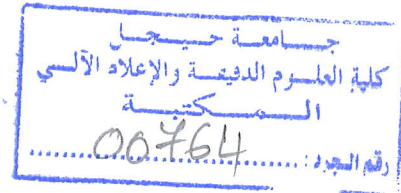 جامعة جيجل
كلية العلوم الدقيقة والإعلام الآلي
المكتبة
رقم الجرد: 00764